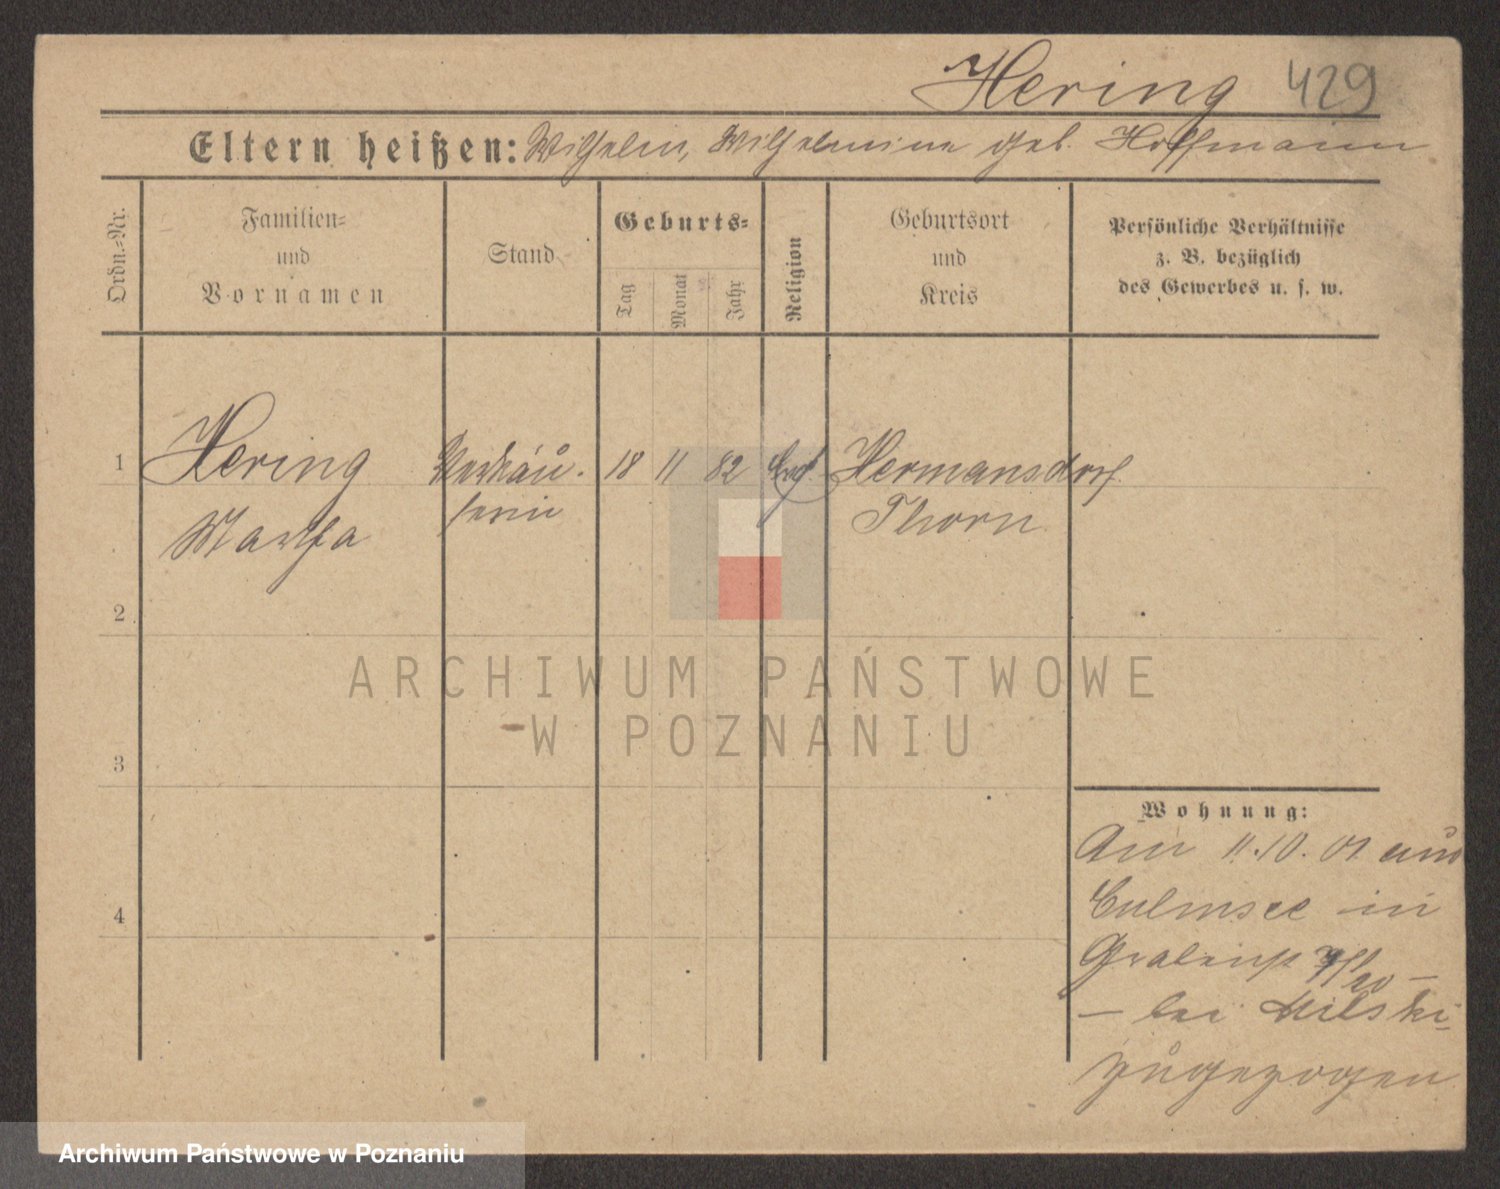 Hering 429
Eltern heißen: Wilhelm, Wilhelmine geb. Hoffmann
Ordn.-Nr.
Familien-
und
Vornamen
Stand
Geburts-
Tag
Monat
Jahr
Religion
Geburtsort
und
Kreis
Persönliche Verhältnisse
z. B. bezüglich
des Gewerbes u. s. w.
1 Hering Verkäu- 18 11 82 Evgl. Hermansdorf
Martha ferin Thorn
2
3
4
ARCHIWUM PAŃSTWOWE
W POZNANIU
Wohnung:
Am 11.10.01 aus
Culmsee in
bei Milski
zugezogen
Archiwum Państwowe w Poznaniu